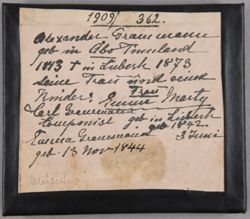 1909/ 362.
Alexander Grammann
geb in Abo Finnland
1813 † in Lübeck 1873
seine Frau und seine
Kinder: Frau Emma Marty
Carl Grammann
Componist geb in Lübeck
geb 1842
Emma Grammann 3 Juni
geb. 13 Nov 1844